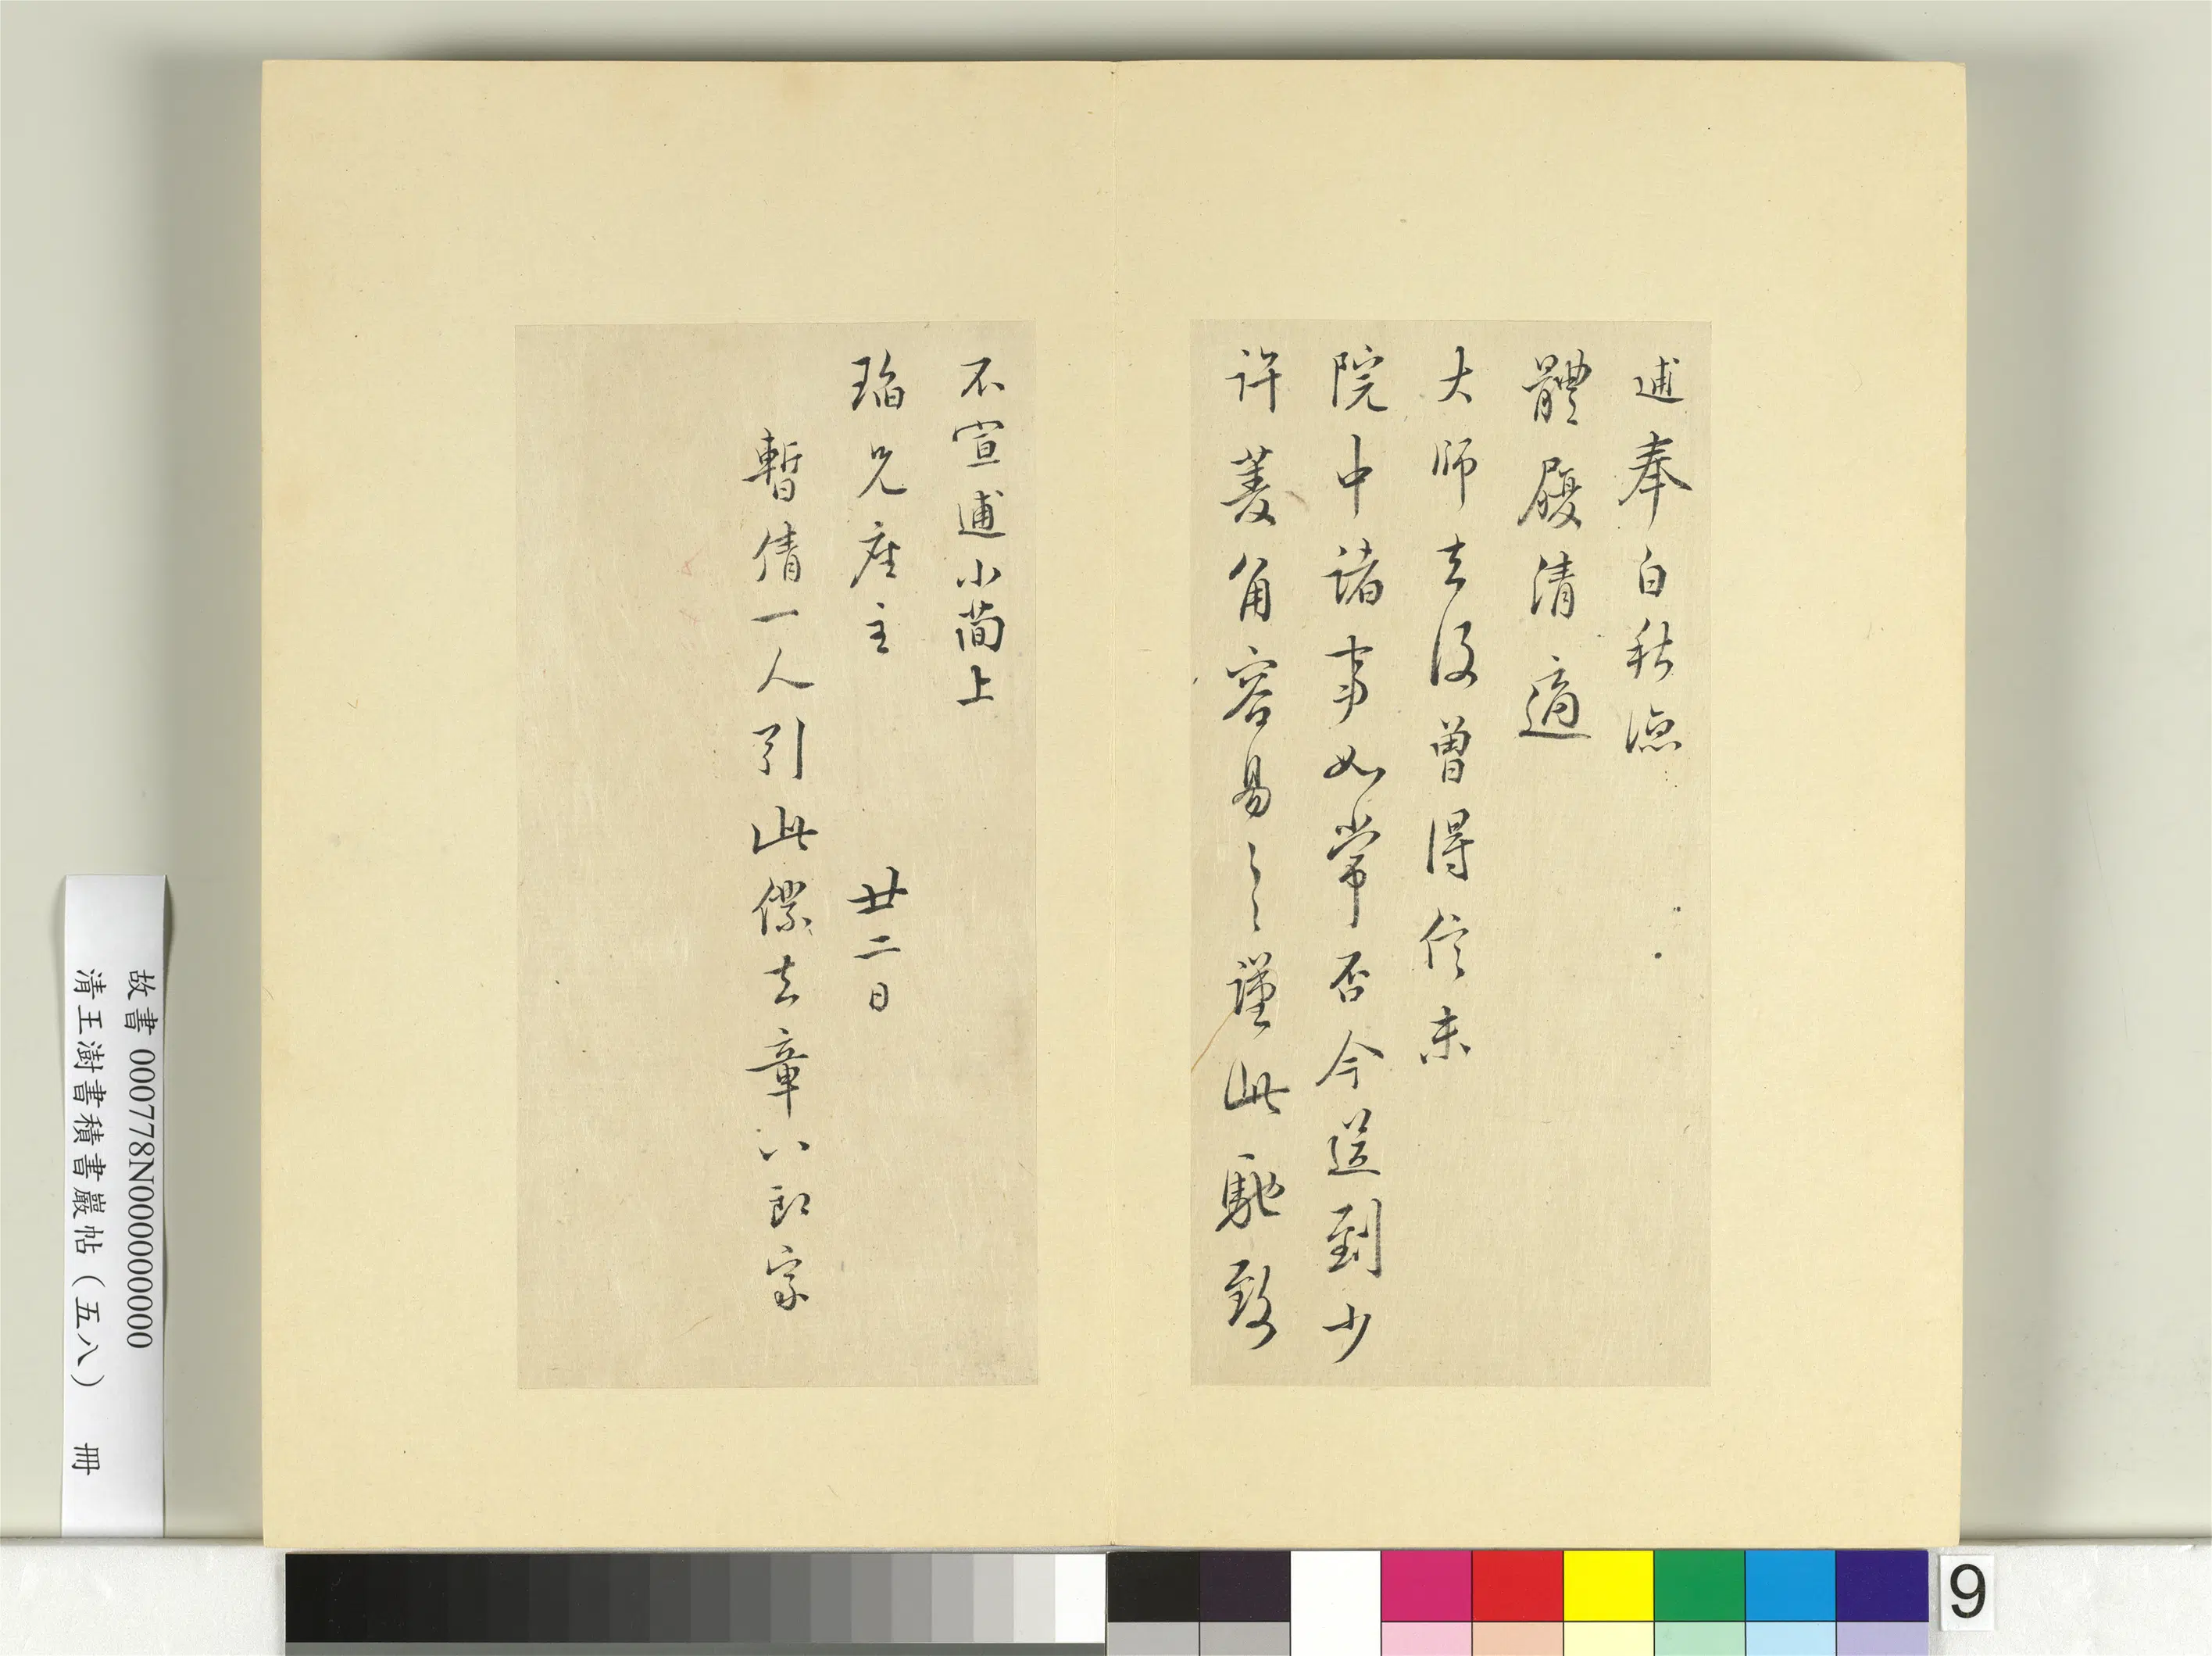 逋奉白秋涼
體履清適
大師去後曾得信未
院中諸事如常否今送到少
許菱角容易〻〻謹此馳致
不宣逋小簡上
瑫兄座主 廿二日
暫倩一人引此僕去章八郎家
故書 000778N000000000
清王澍書積書巖帖（五八） 冊
9